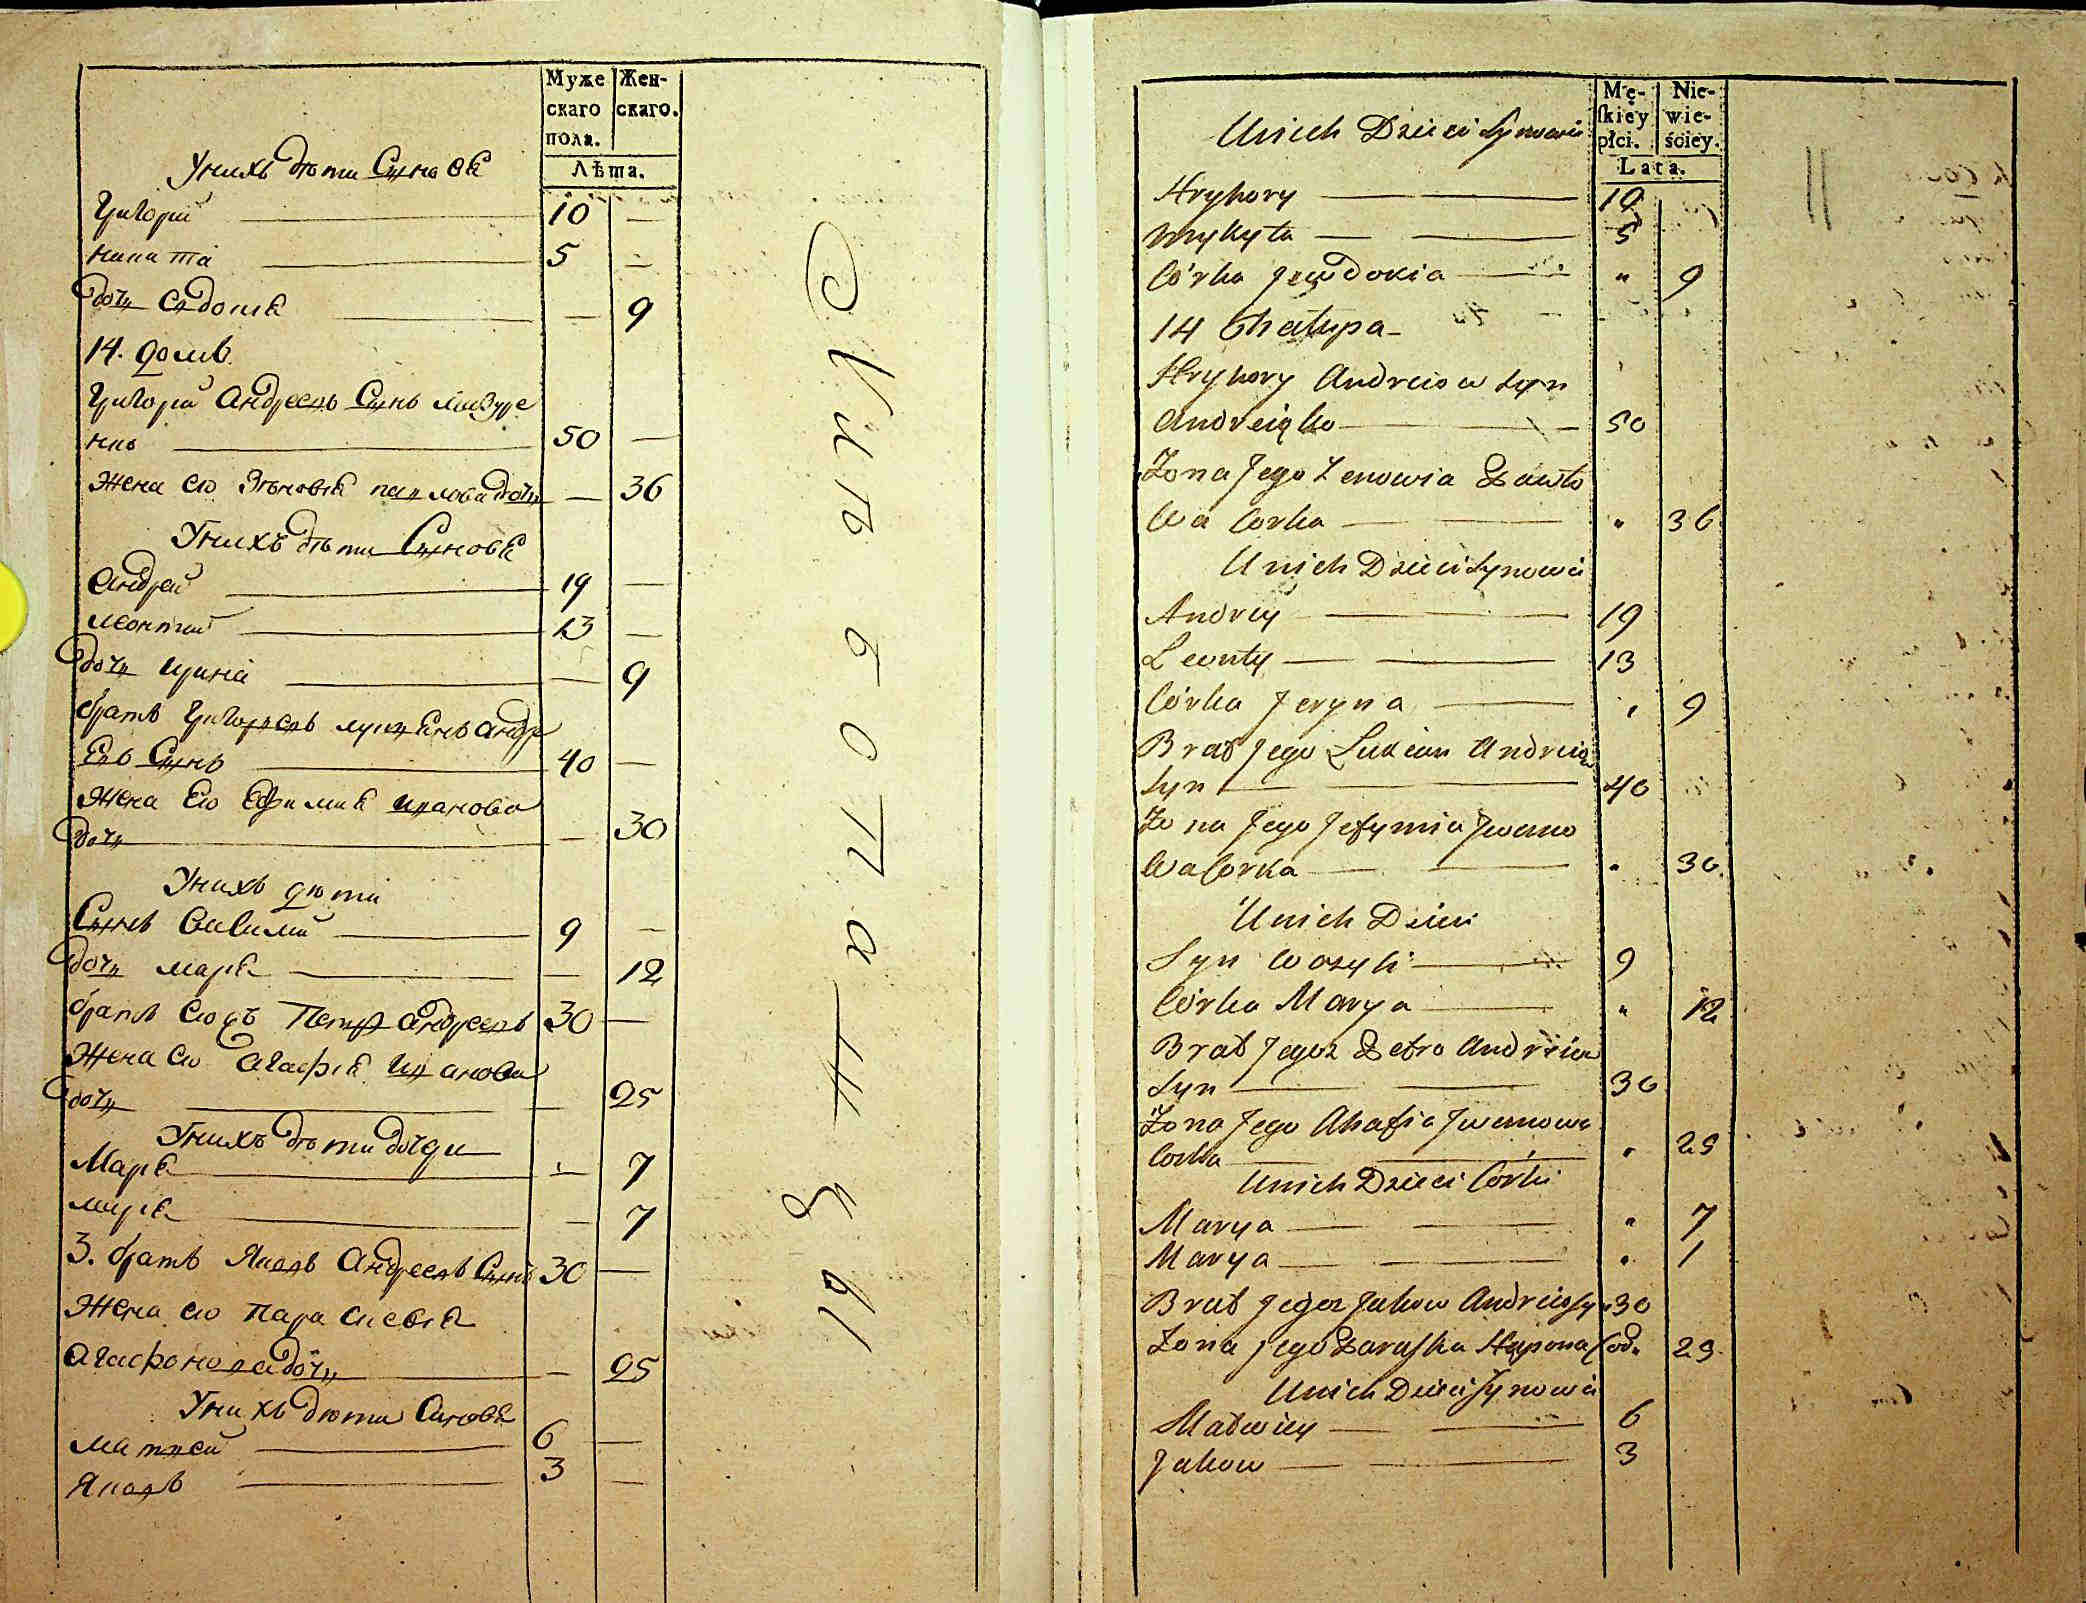 Муже
скаго
пола.
Жен-
скаго.
Лѣта.
Унихъ дѣти Сынове
Григорій 10 —
Никита 5 —
дочь Евдокія — 9
14. домъ
Григорій Андреевъ Сынъ
50 —
Жена его Зѣновія павлова дочь — 36
Унихъ дѣти Сынове
Андрей 19 —
Леонтій 13 —
дочь Ирина — 9
братъ Григорьевъ Лукіянъ Андре
евъ Сынъ 40 —
Жена Его Ефимія иванова
дочь — 30
Унихъ дѣти
Сынъ Василій 9 —
дочь Марія — 12
братъ Петръ Андреевъ 30 —
Жена его Агафія Ивановa
дочь — 25
Унихъ дѣти дочери
Марія — 7
марія — 7
3. братъ Яковъ Андреевъ Сынъ 30 —
Жена его Параскевія
Агафонова дочь — 25
Унихъ дѣти Синове
Матвей 6 —
Яковъ 3 —
Mę-
ſkiey
płci.
Nie-
wie-
ściey.
Lata.
Unich Dzieci Synowie
Hryhory 10
Mykyta 5
Córka Jewdokia " 9
14 Chałupa
Hryhory Andreiow Syn
50
Żona Jego Zenowia Pawło
wa Corka " 36
Unich Dzieci Synowie
Andrey 19
Leonty 13
Córka Jeryna " 9
Brat Jego Lukian Andreio
Syn 40
Żona Jego Jefymia Jwano
wa Corka " 30
Unich Dzieci
Syn Wasyli 9
Córka Marya " 12
Brat Jegoż Petro Andreiow
Syn 30
Żona Jego Ahafia Jwanowa
Corka " 25
Unich Dzieci Corki
Marya " 7
Marya " 1
Brat Jegoż Jakow Andreio Sy 30
Żona Jego Paraſka Hapona Cor. 25
Unich Dzieci Synowie
Matwiey 6
Jakow 3